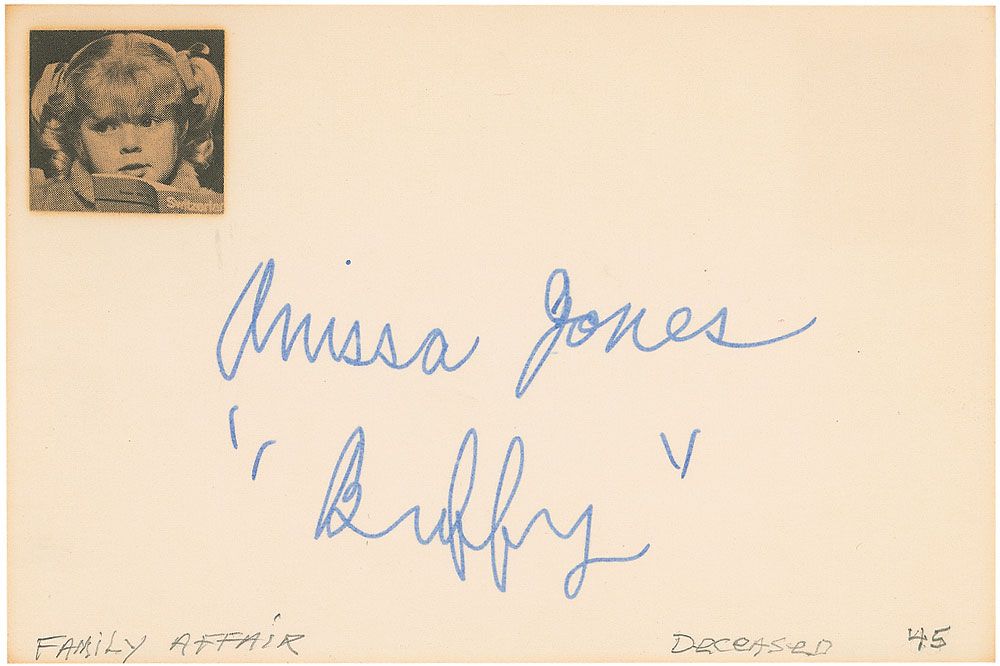 Switzerlan
Anissa Jones
"Buffy"
FAMILY AFFAIR DECEASED 45